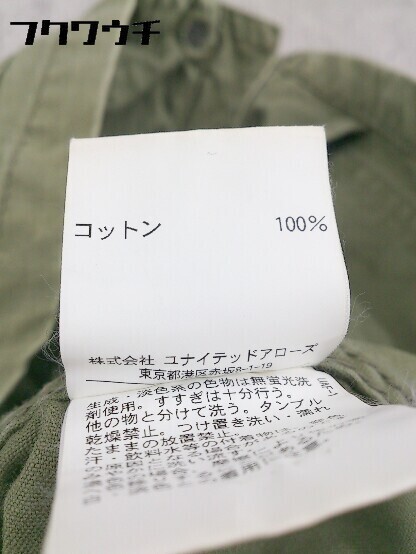 フクワウチ
コットン 100%
株式会社 ユナイテッドアローズ
東京都港区赤坂8-1-19
生成・淡色系の色物は無蛍光洗
剤使用。すすぎは十分行う。
他の物と分けて洗う。タンブル
乾燥禁止。つけ置き洗い・濡れ
たままの放置禁止。
汗・飲料水等の付着